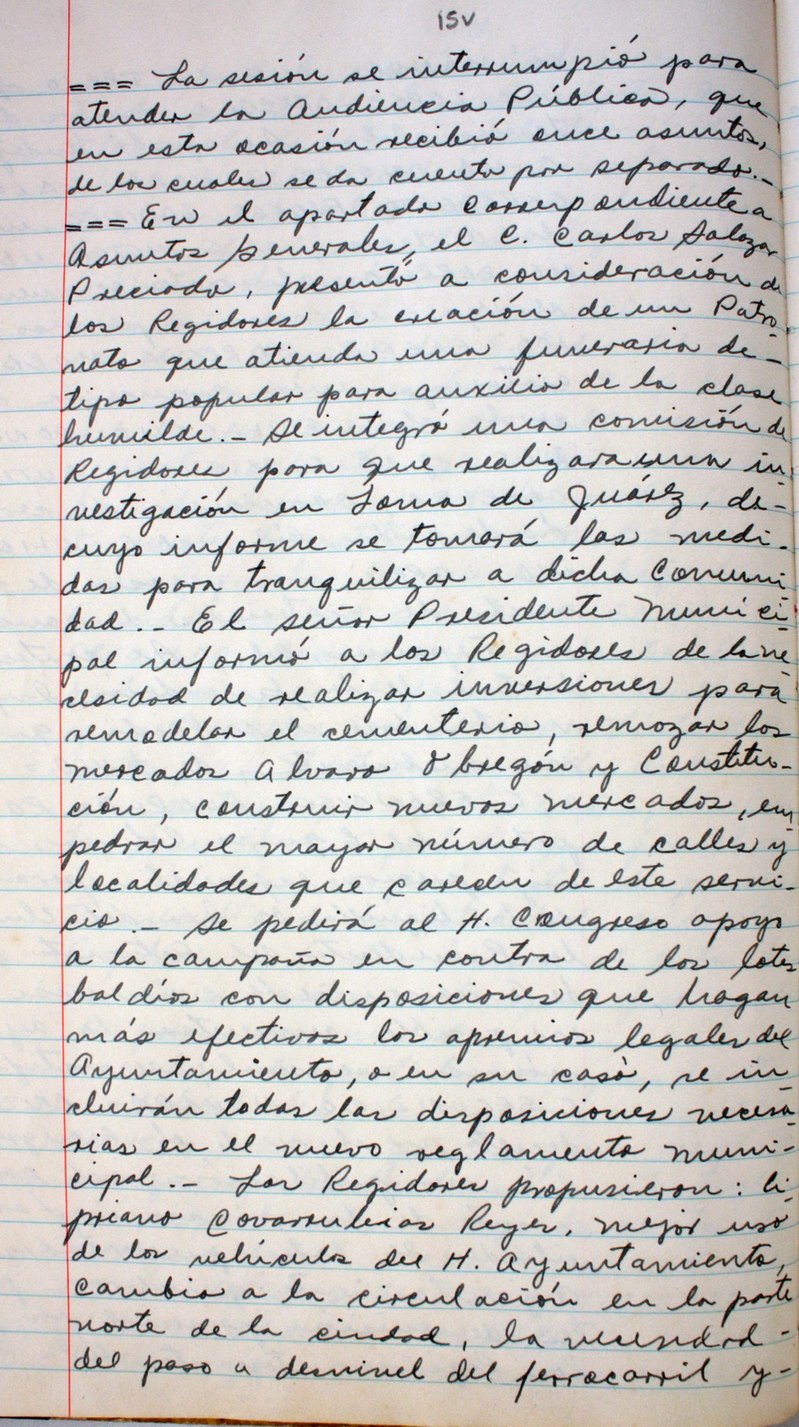 15v
=== La sesión se interrumpió para
atender la Audiencia Pública, que
en esta ocasión recibió once asuntos,
de los cuales se da cuenta por separado.-
=== En el apartado correspondiente a
Asuntos Generales, el C. Carlos Salazar
Preciado, presentó a consideración de
los Regidores la creación de un Patro-
nato que atienda una funeraria de-
tipo popular para auxilio de la clase
humilde.- Se integró una comisión de
Regidores para que realizara una in-
vestigación en Loma de Juárez, de-
cuyo informe se tomará las medi-
das para tranquilizar a dicha Comuni
dad.- El señor Presidente Munici-
pal informó a los Regidores de la ne
cesidad de realizar inversiones para
remodelar el cementerio, remozar los
mercados Alvaro Obregón y Constitu-
ción, construir nuevos mercados, em
pedrar el mayor número de calles y
localidades que carecen de este servi-
cio.- Se pedirá al H. Congreso apoyo
a la campaña en contra de los lotes
baldíos con disposiciones que hagan
más efectivos los apremios legales del
Ayuntamiento, o en su caso, se in-
cluirán todas las disposiciones necesa-
rias en el nuevo reglamento muni-
cipal.- Los Regidores propusieron: Ci-
priano Covarrubias Reyes, mejor uso
de los vehículos del H. Ayuntamiento,
cambio a la circulación en la parte
norte de la ciudad, la necesidad-
del paso a desnivel del ferrocarril y-